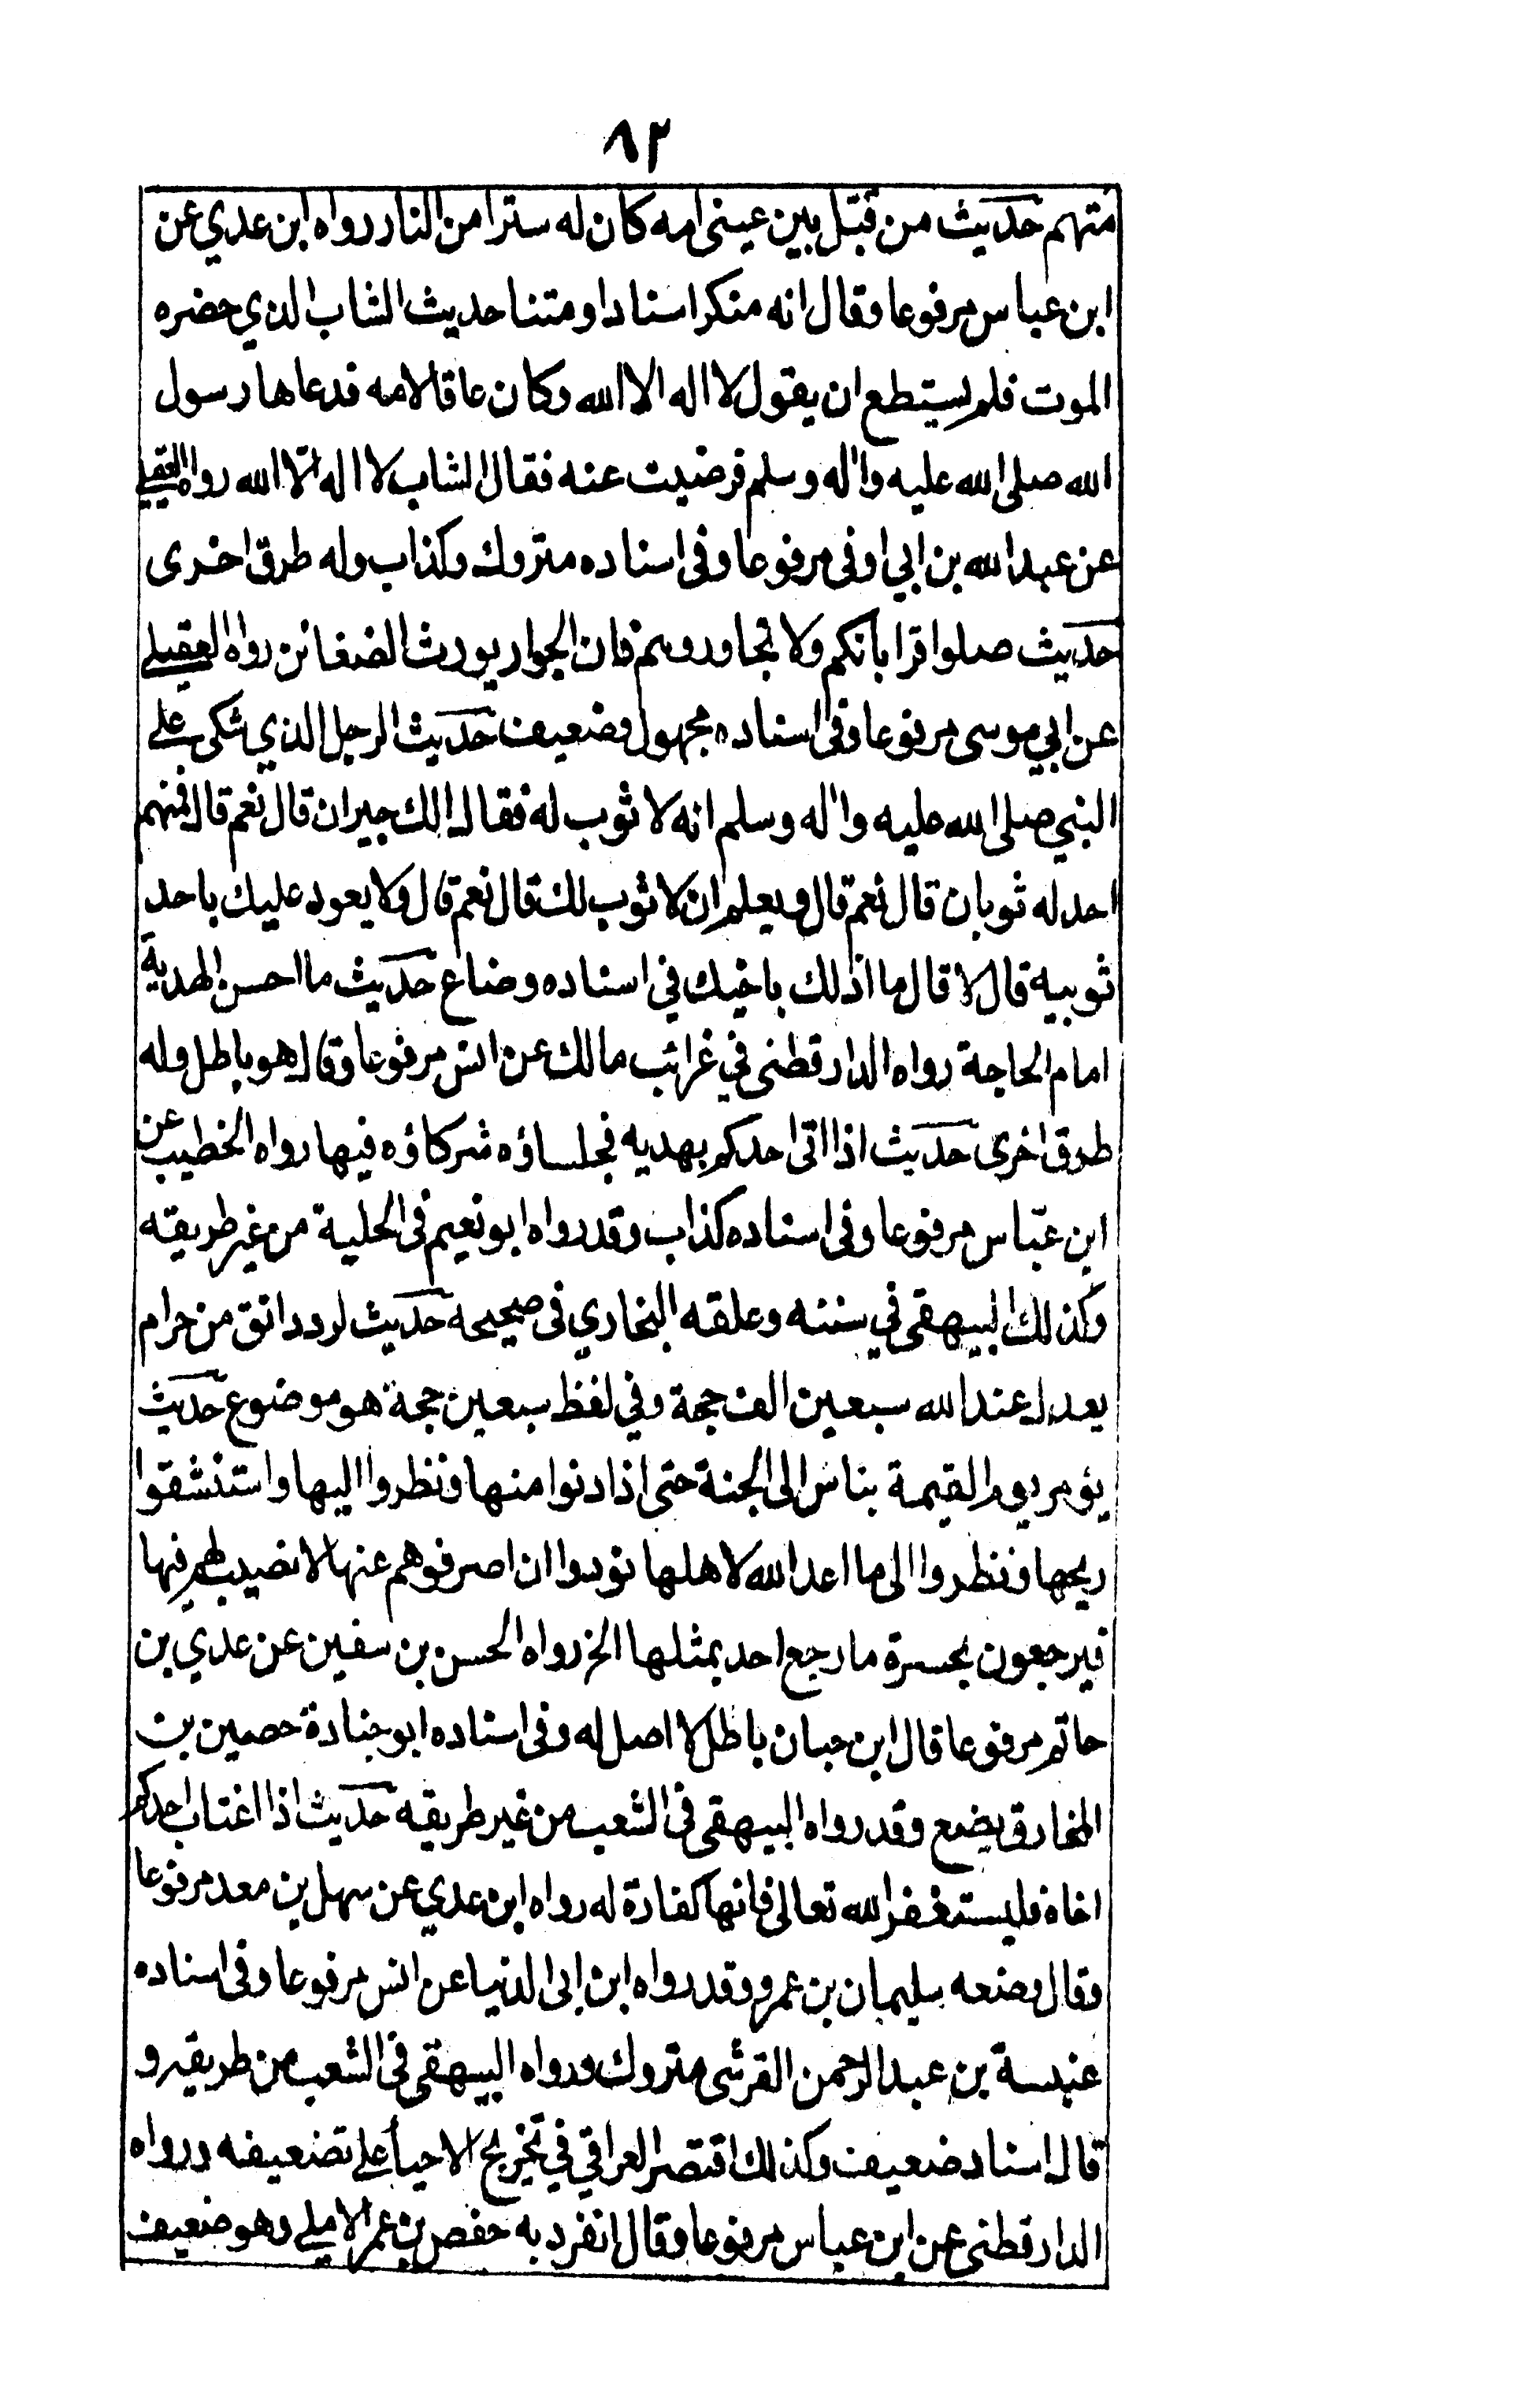 ٨٢
متهم حديث من قبل بين عينى امه كان له سترا من النار رواه ابن عدي عن
ابن عباس مرفوعا وقال انه منكر اسنادا ومتنا حديث الشاب الذي حضره
الموت فلم يستطع ان يقول لا اله الا الله وكان عاقا لامه فدعاها رسول
الله صلى الله عليه واٰله وسلم فرضيت عنه فقال الشاب لا اله الّا الله رواه العقيلے
عن عبد الله بن ابي اوفى مرفوعا وفى اسناده متروك وكذاب وله طرق اخرى
حديث صلوا قراباتكم ولا تجاوروهم فان الجوار يورث الضغائن رواه العقيلے
عن ابي موسى مرفوعا وفى اسناده مجهول وضعيف حديث الرجل الذي شكى علے
النبي صلى الله عليه واٰله وسلم انه لا ثوب له فقال الك جيران قال نعم قال فمنهم
احد له ثوبان قال نعم قال ويعلم ان لا ثوب لك قال نعم قال ولا يعود عليك باحد
ثوبيه قال لا قال ما اذلك باخيك في اسناده وضاع حديث ما احسن الهدية
امام الحاجة رواه الدارقطنى في غرائب مالك عن انس مرفوعا وقال هو باطل وله
طرق اخرى حديث اذا اتى احدكم بهديه فجلساؤه شركاؤه فيها رواه الخطيب عن
ابن عبّاس مرفوعا وفى اسناده كذاب وقد رواه ابو نعيم فى الحلية من غير طريقه
وكذلك البيهقى في سننه وعلقه البخاري فى صحيحه حديث لرد دانق من حرام
يعدل عند الله سبعين الف حجة وفي لفظ سبعين حجة هو موضوع حديث
يؤمر يوم القيمة بناس الى الجنة حتى اذا دنوا منها ونظروا اليها واستنشقوا
ريحها ونظروا الى ما اعد الله لاهلها نودوا ان اصرفوهم عنها لا نصيب لهم فيها
فيرجعون بحسرة ما رجع احد بمثلها الخ رواه الحسن بن سفين عن عدي بن
حاتم مرفوعا قال ابن حبان باطل لا اصل له وفى اسناده ابو جنادة حصين بن
المخارق يضع وقد رواه البيهقى فى الشعب من غير طريقه حديث اذا اغتاب احدكم
اخاه فليستغفر الله تعالى فانها كفارة له رواه ابن عدي عن سهل بن سعد مرفوعا
وقال وضعه سليمان بن عمرو وقد رواه ابن ابى الدنيا عن انس مرفوعا وفى اسناده
عنبسة بن عبد الرحمن القرشى متروك ورواه البيهقى فى الشعب من طريقه و
قال اسناد ضعيف وكذلك اقتصر العراقي في تخريج الاحيأ على تضعيفه ورواه
الدارقطنى عن ابن عباس مرفوعا وقال انفرد به حفص بن عمر الاملے وهو ضعيف